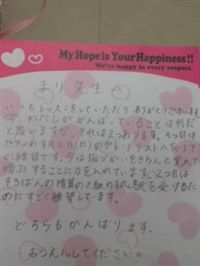 My Hope is Your Happiness!!
We're happy in every respect.
まり先生へ
いつもレッスンをしていただき ありがとうございます
今、わたしががんばっていることは何だ
と思いますか。それは2つあります。1つ目は
ピアノの9月2日(日)の
の練習です。今は指づかいをきちんと覚えて
することに力を入れています。2つ目は
そろばんの暗算の2級の試験を受けるた
めにすごく練習しています。
どちらもがんばります。
おうえんしてください